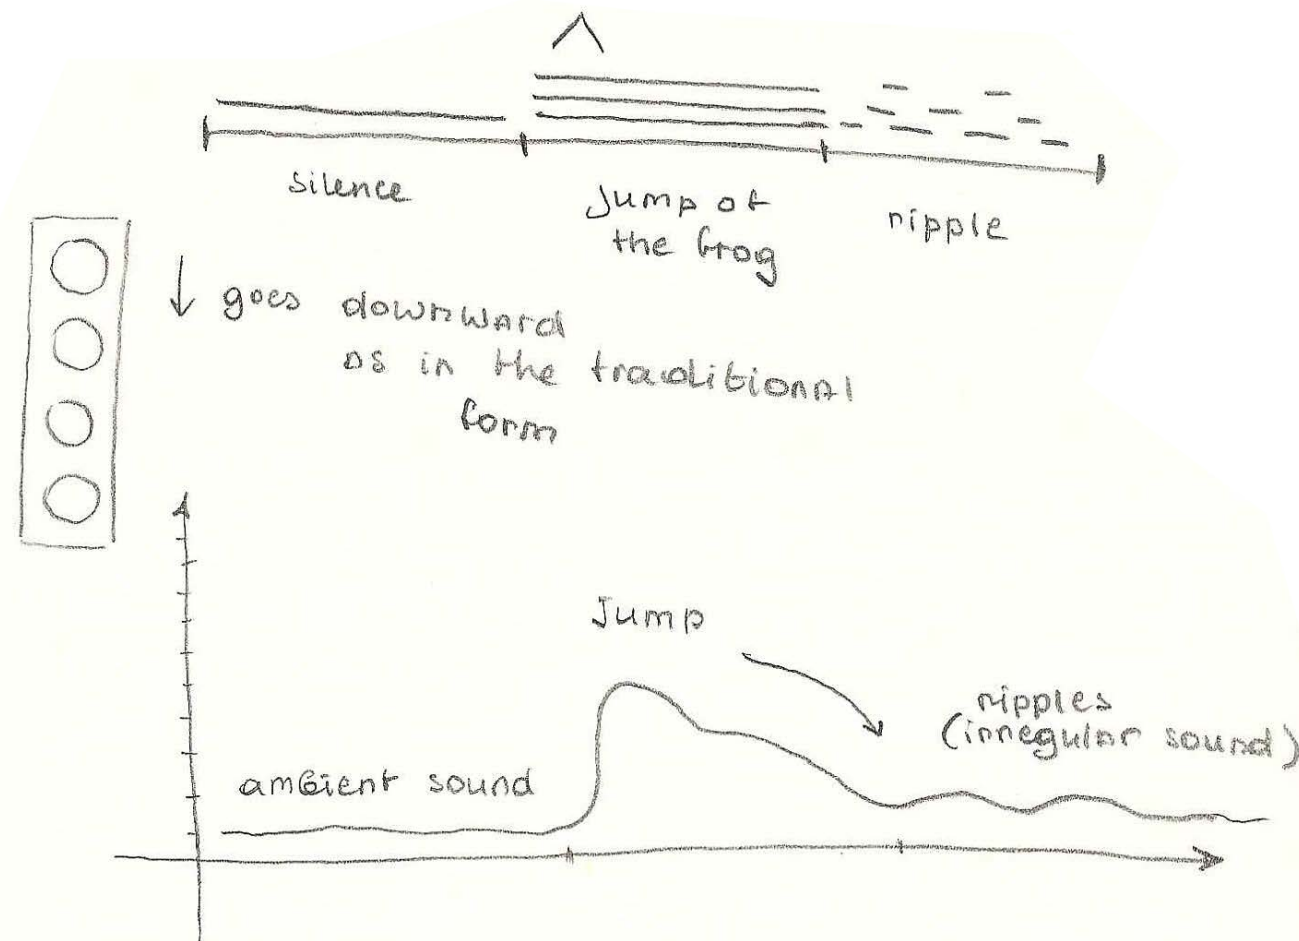 silence
Jump of
the frog
ripple
goes downward
as in the traditional
form
Jump
ripples
(irregular sound)
ambient sound